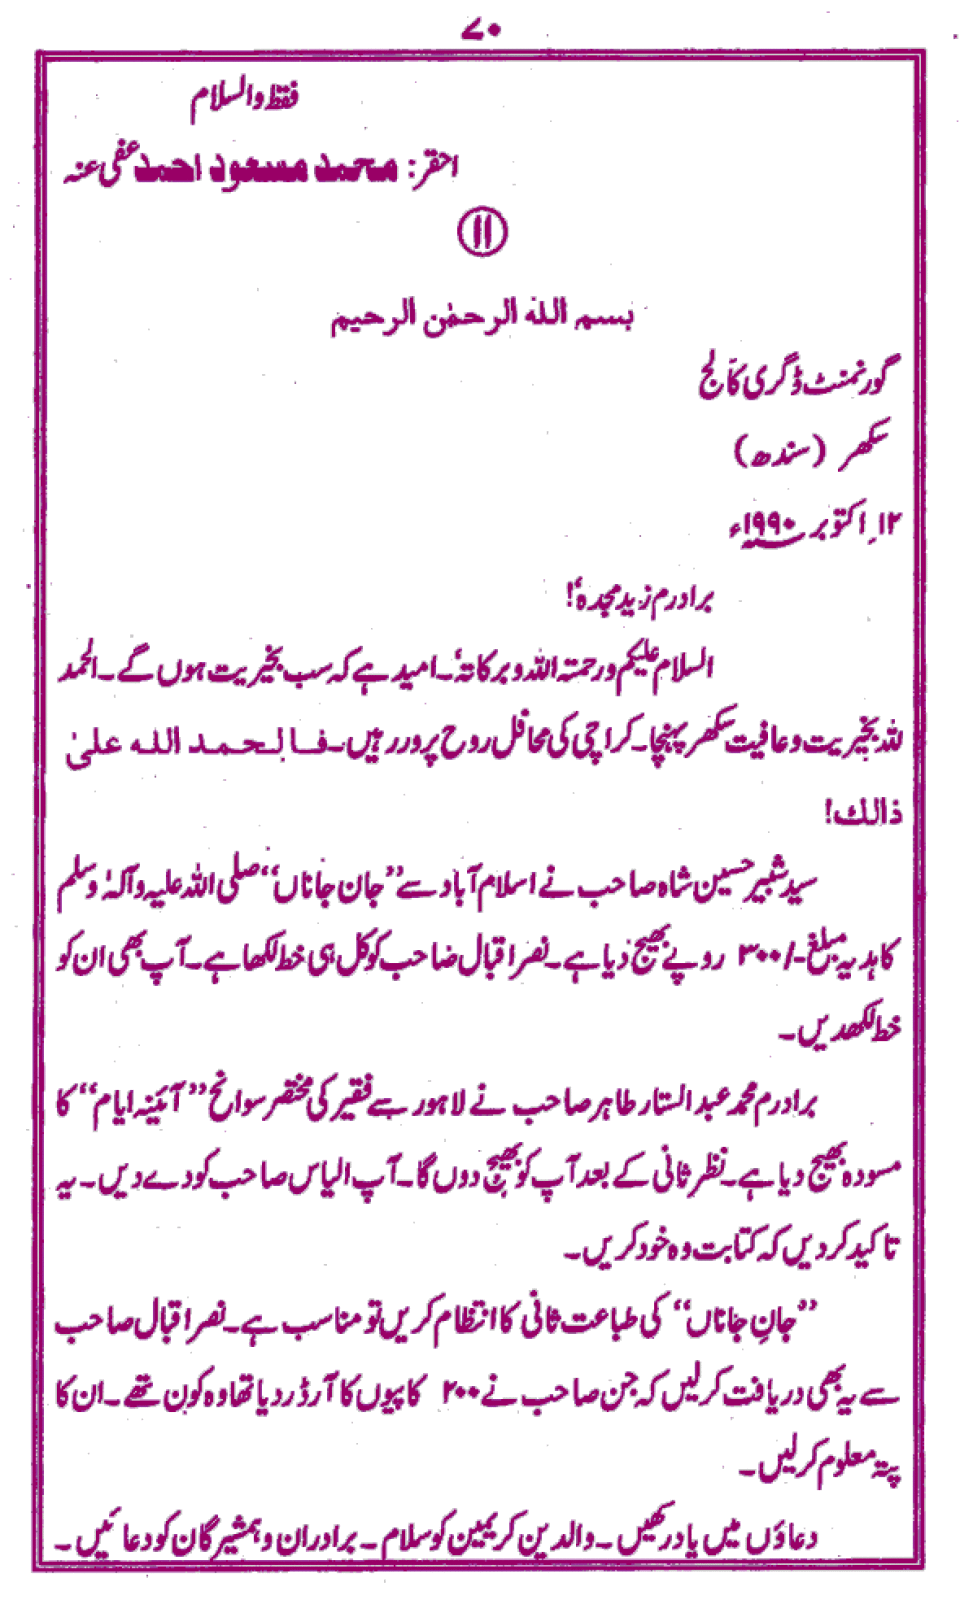 ۷۰
فقط والسلام
احقر: محمد مسعود احمد عفی عنہ
۱۱
بسم اللہ الرحمٰن الرحیم
گورنمنٹ ڈگری کالج
سکھر (سندھ)
۱۲؍اکتوبر ۱۹۹۰ء
برادرم زید مجدہٗ!
السلام علیکم ورحمتہ اللہ وبرکاتہٗ۔ امید ہے کہ سب بخیریت ہوں گے۔ الحمد
للہ بخیریت و عافیت سکھر پہنچا۔ کراچی کی محافل روح پرور رہیں۔ فالحمد اللہ علیٰ
ذالک!
سید شبیر حسین شاہ صاحب نے اسلام آباد سے ’’جان جاناں‘‘ صلی اللہ علیہ وآلہٖ وسلم
کا ہدیہ مبلغ -/۳۰۰ روپے بھیج دیا ہے۔ نصر اقبال ضاحب کو کل ہی خط لکھا ہے۔ آپ بھی ان کو
خط لکھدیں۔
برادرم محمد عبد الستار طاہر صاحب نے لاہور سے فقیر کی مختصر سوانح ’’آئینہ ایام‘‘ کا
مسودہ بھیج دیا ہے۔ نظر ثانی کے بعد آپ کو بھیج دوں گا۔ آپ الیاس صاحب کو دے دیں۔ یہ
تاکید کردیں کہ کتابت وہ خود کریں۔
’’جانِ جاناں‘‘ کی طباعت ثانی کا انتظام کریں تو مناسب ہے۔ نصر اقبال صاحب
سے یہ بھی دریافت کرلیں کہ جن صاحب نے ۲۰۰ کاپیوں کا آرڈر دیا تھا وہ کون تھے۔ ان کا
پتہ معلوم کرلیں۔
دعاؤں میں یاد رکھیں۔ والدین کریمین کو سلام۔ برادران و ہمشیرگان کو دعائیں۔